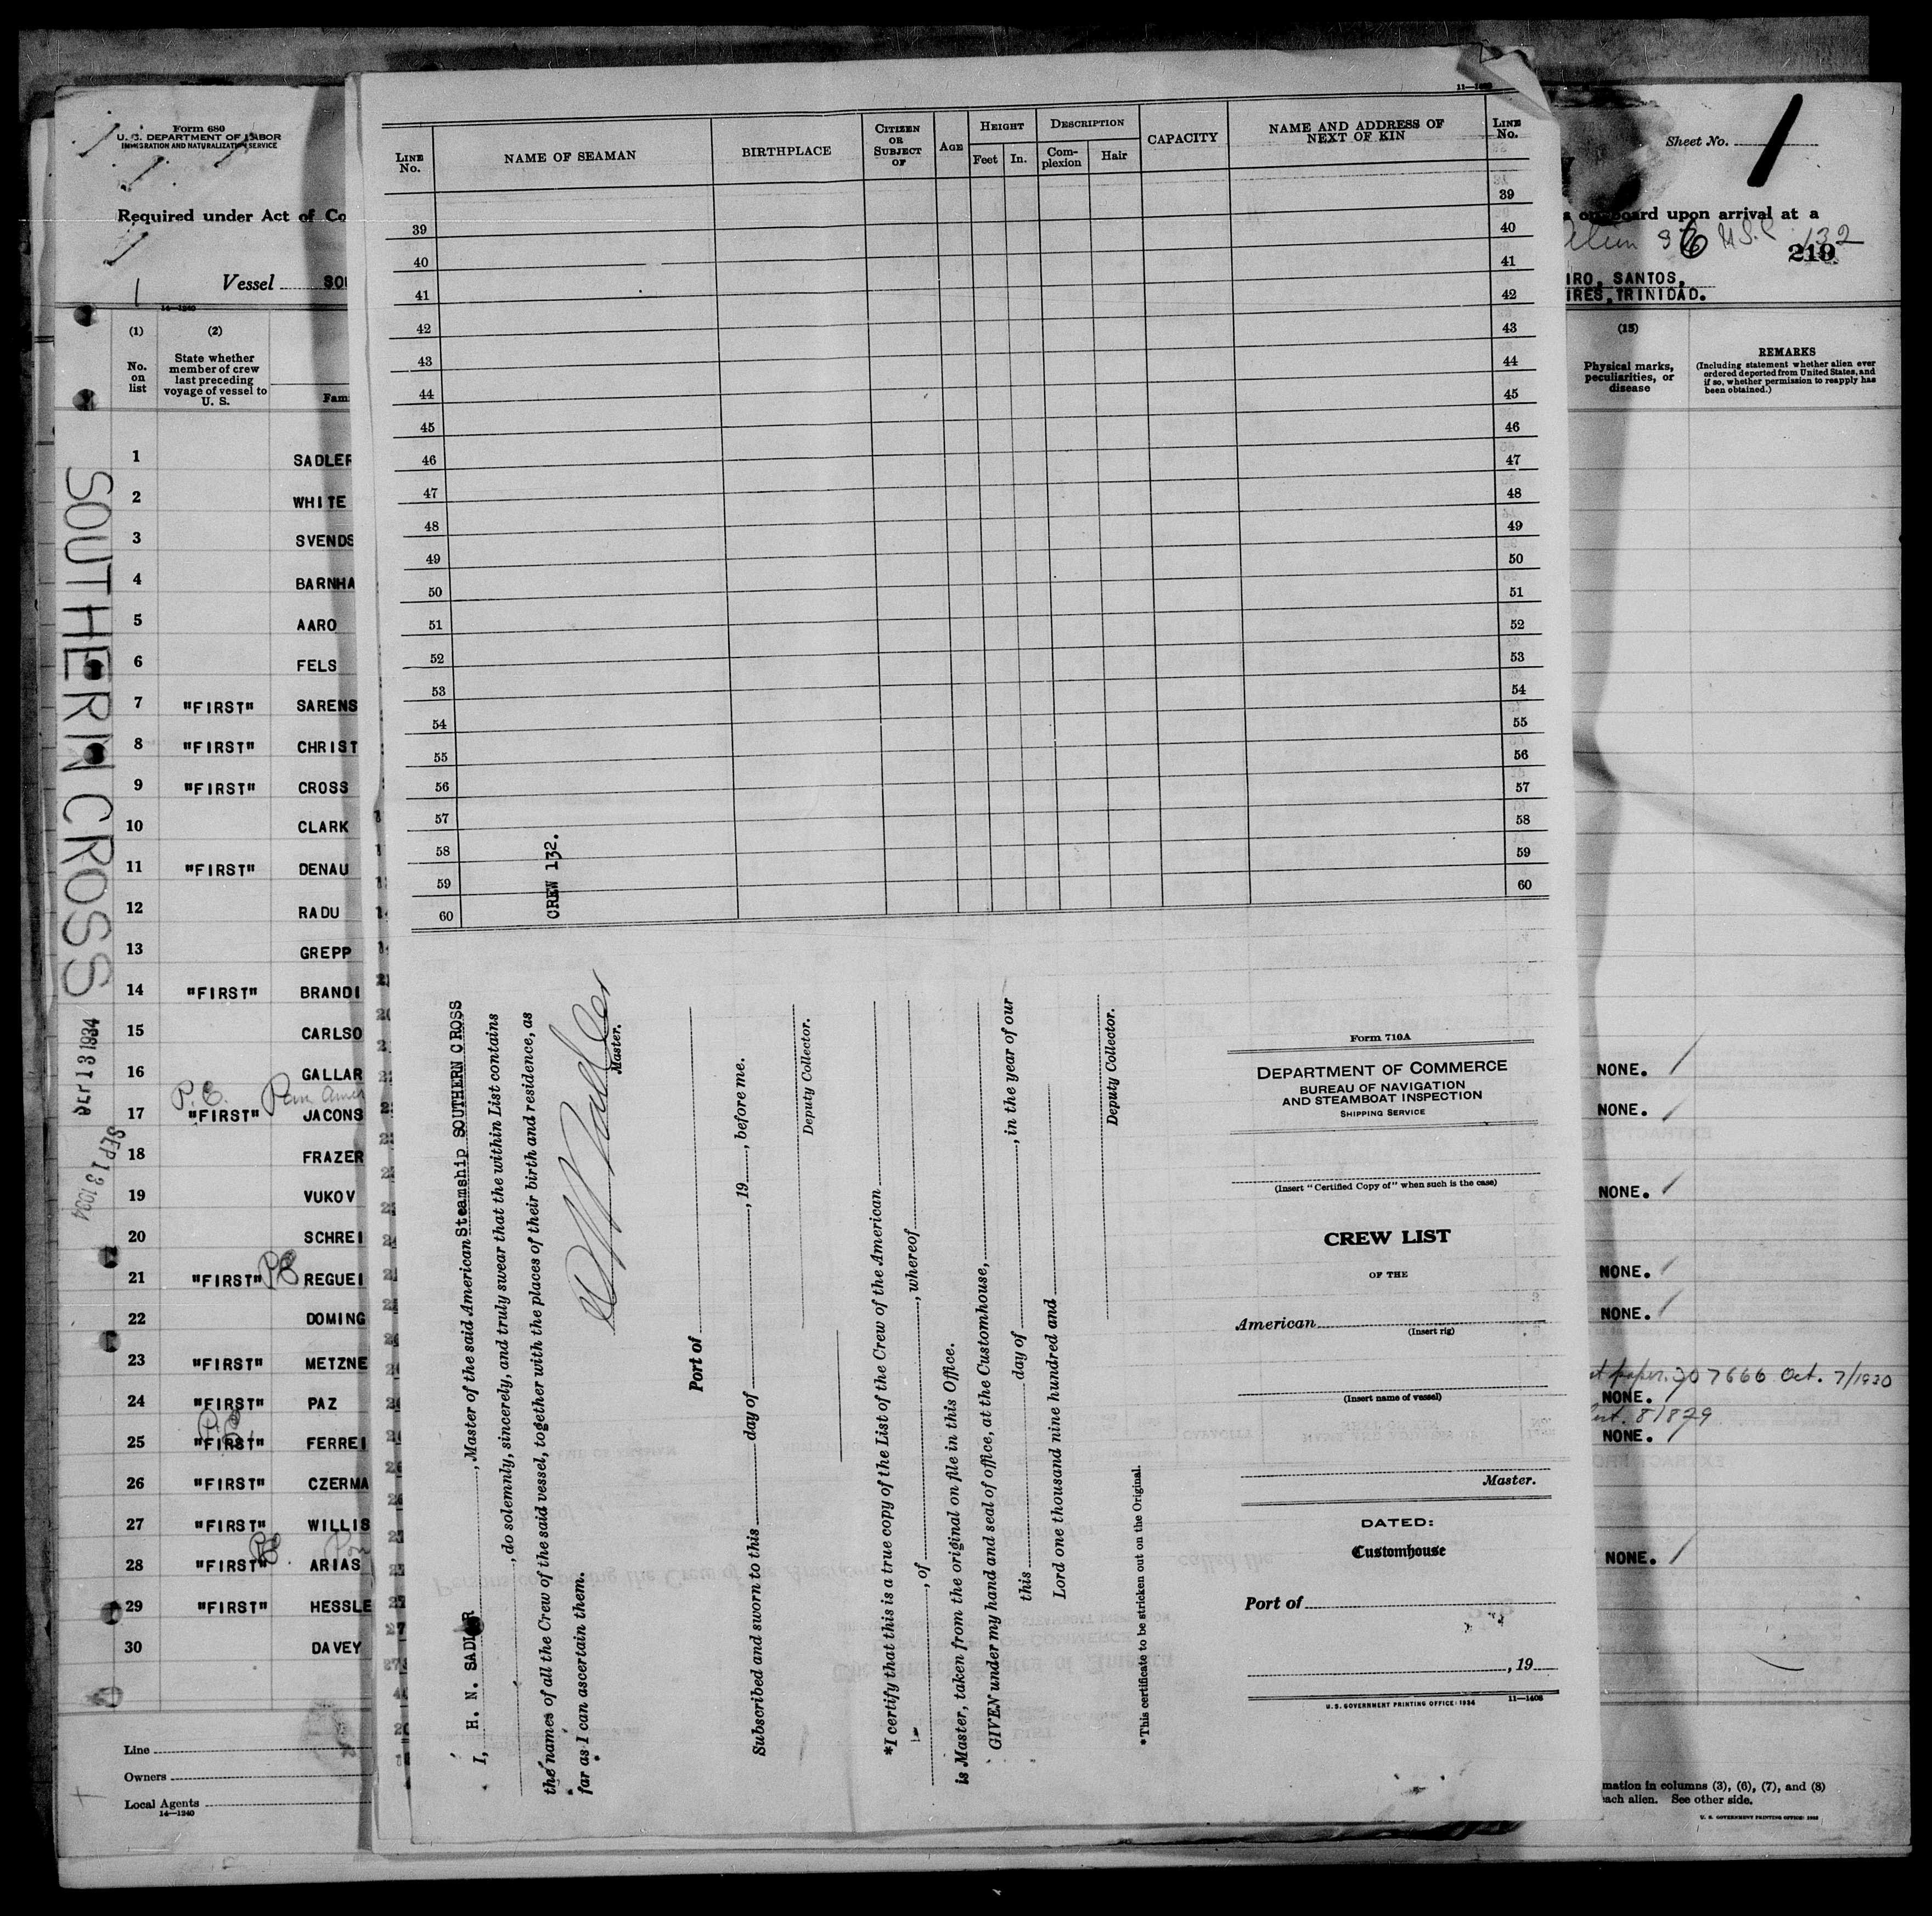 Form 680
U. S. DEPARTMENT OF LABOR
IMMIGRATION AND NATURALIZATION SERVICE
Required under Act of Co
Vessel SOU
14—1240
(1)
No. on list
(2)
State whether member of crew last preceding voyage of vessel to U. S.
Fam
1 SADLER
2 WHITE
3 SVENDS
4 BARNHA
5 AARO
6 FELS
7 "FIRST" SARENS
8 "FIRST" CHRIST
9 "FIRST" CROSS
10 CLARK
11 "FIRST" DENAU
12 RADU
13 GREPP
14 "FIRST" BRANDI
15 CARLSO
16 GALLAR
P.E.
17 "FIRST" JACONS
18 FRAZER
19 VUKOV
20 SCHREI
21 "FIRST" PE REGUEI
22 DOMING
23 "FIRST" METZNE
24 "FIRST" PAZ
P.E.
25 "FIRST" FERREI
26 "FIRST" CZERMA
27 "FIRST" WILLIS
PE.
28 "FIRST" ARIAS
29 "FIRST" HESSLE
30 DAVEY
Line
Owners
Local Agents
14—1240
SOUTHERN CROSS
SEP 13 1934
LINE No.
NAME OF SEAMAN
BIRTHPLACE
CITIZEN OR SUBJECT OF
AGE
HEIGHT
Feet
In.
DESCRIPTION
Complexion
Hair
CAPACITY
NAME AND ADDRESS OF NEXT OF KIN
LINE No.
39 39
40 40
41 41
42 42
43 43
44 44
45 45
46 46
47 47
48 48
49 49
50 50
51 51
52 52
53 53
54 54
55 55
56 56
57 57
58 58
59 59
60 60
CREW 132.
I, H. N. SADLER, Master of the said American Steamship SOUTHERN CROSS
, do solemnly, sincerely, and truly swear that the within List contains
the names of all the Crew of the said vessel, together with the places of their birth and residence, as
far as I can ascertain them.
Master.
Port of
Subscribed and sworn to this day of , 19 , before me.
Deputy Collector.
*I certify that this is a true copy of the List of the Crew of the American
, of , whereof
is Master, taken from the original on file in this Office.
GIVEN under my hand and seal of office, at the Customhouse,
this day of , in the year of our
Lord one thousand nine hundred and
Deputy Collector.
*This certificate to be stricken out on the Original.
Form 710A
DEPARTMENT OF COMMERCE
BUREAU OF NAVIGATION
AND STEAMBOAT INSPECTION
SHIPPING SERVICE
(Insert "Certified Copy of" when such is the case)
CREW LIST
OF THE
American
(Insert rig)
(Insert name of vessel)
Master.
DATED:
Customhouse
Port of
, 19
U. S. GOVERNMENT PRINTING OFFICE: 1934 11—1408
Sheet No. 1
board upon arrival at a
132
219
IRO, SANTOS,
IRES, TRINIDAD.
(15)
Physical marks, peculiarities, or disease
REMARKS
(Including statement whether alien ever ordered deported from United States, and if so, whether permission to reapply has been obtained.)
NONE.
NONE.
NONE.
NONE.
NONE.
207666 Oct. 7/1930
NONE.
81879
NONE.
NONE.
mation in columns (3), (6), (7), and (8)
each alien. See other side.
U. S. GOVERNMENT PRINTING OFFICE: